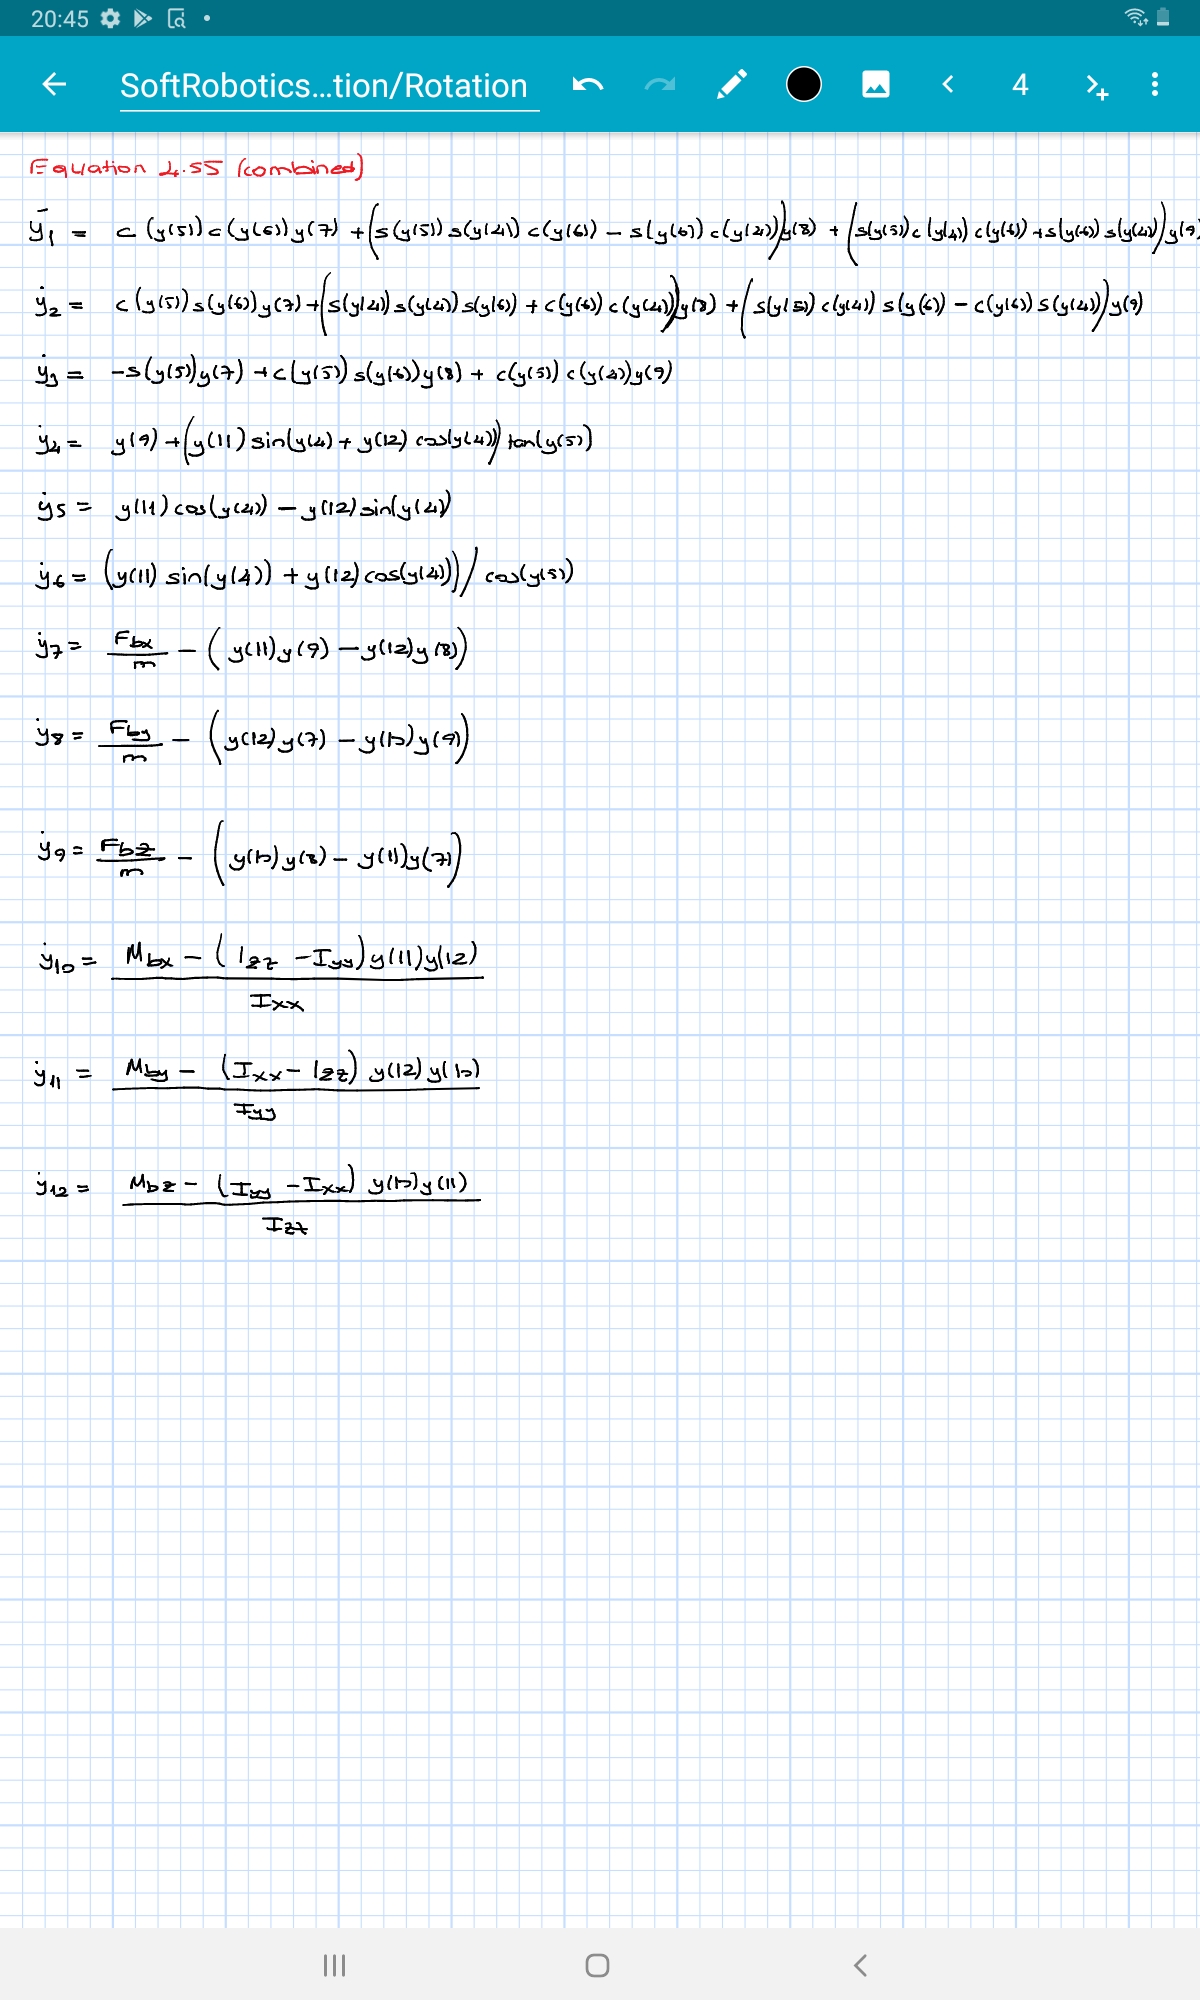 20:45
SoftRobotics...tion/Rotation
4
Equation 4.55 (combined)
ẏ1 = c(y(5))c(y(6))y(7) + (s(y(5))s(y(4))c(y(6)) - s(y(6))c(y(4)))y(8) + (s(y(5))c(y(4))c(y(6)) + s(y(6))s(y(4)))y(9)
ẏ2 = c(y(5))s(y(6))y(7) + (s(y(4))s(y(4))s(y(6)) + c(y(6))c(y(4)))y(8) + (s(y(5))c(y(4))s(y(6)) - c(y(6))s(y(4)))y(9)
ẏ3 = -s(y(5))y(7) + c(y(5))s(y(6))y(8) + c(y(5))c(y(4))y(9)
ẏ4 = y(9) + (y(11)sin(y(4) + y(12)cos(y(4))) tan(y(5))
ẏ5 = y(11)cos(y(4)) - y(12)sin(y(4))
ẏ6 = (y(11)sin(y(4)) + y(12)cos(y(4)))/cos(y(5))
ẏ7 = Fbx/m - (y(11)y(9) - y(12)y(8))
ẏ8 = Fby/m - (y(12)y(7) - y(10)y(9))
ẏ9 = Fbz/m - (y(10)y(8) - y(11)y(7))
ẏ10 = Mbx - (Izz - Iyy)y(11)y(12)
Ixx
ẏ11 = Mby - (Ixx - Izz)y(12)y(10)
Iyy
ẏ12 = Mbz - (Iyy - Ixx)y(10)y(11)
Izz